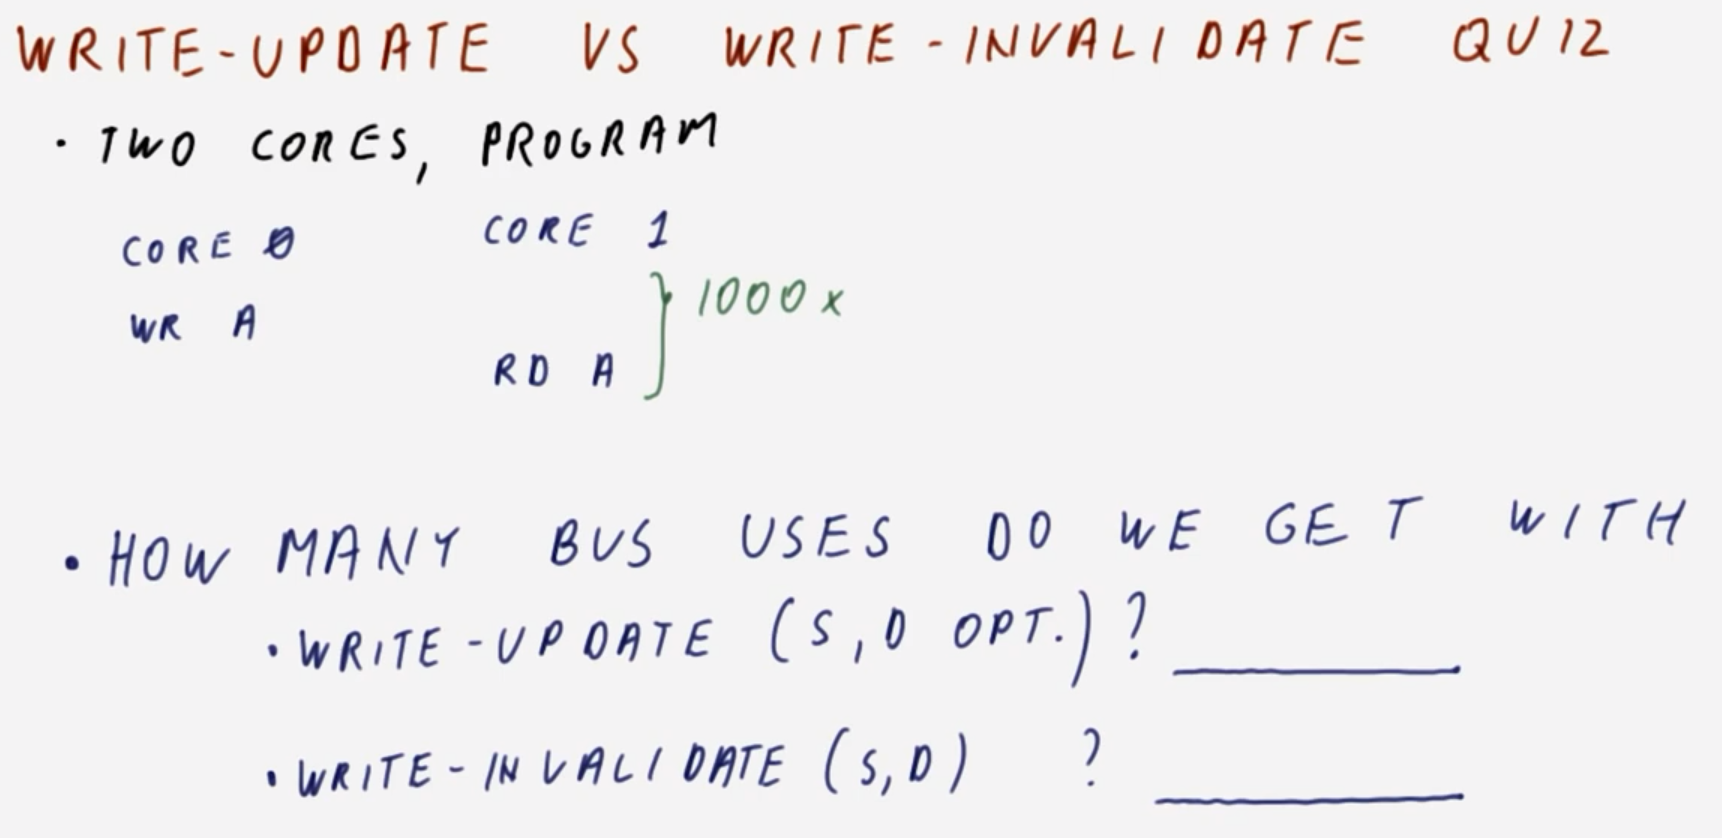 WRITE-UPDATE VS WRITE-INVALIDATE QUIZ
• TWO CORES, PROGRAM
CORE 0 CORE 1
WR A } 1000x
RD A
• HOW MANY BUS USES DO WE GET WITH
• WRITE-UPDATE (S, D OPT.) ? ______
• WRITE-INVALIDATE (S, D) ? ______